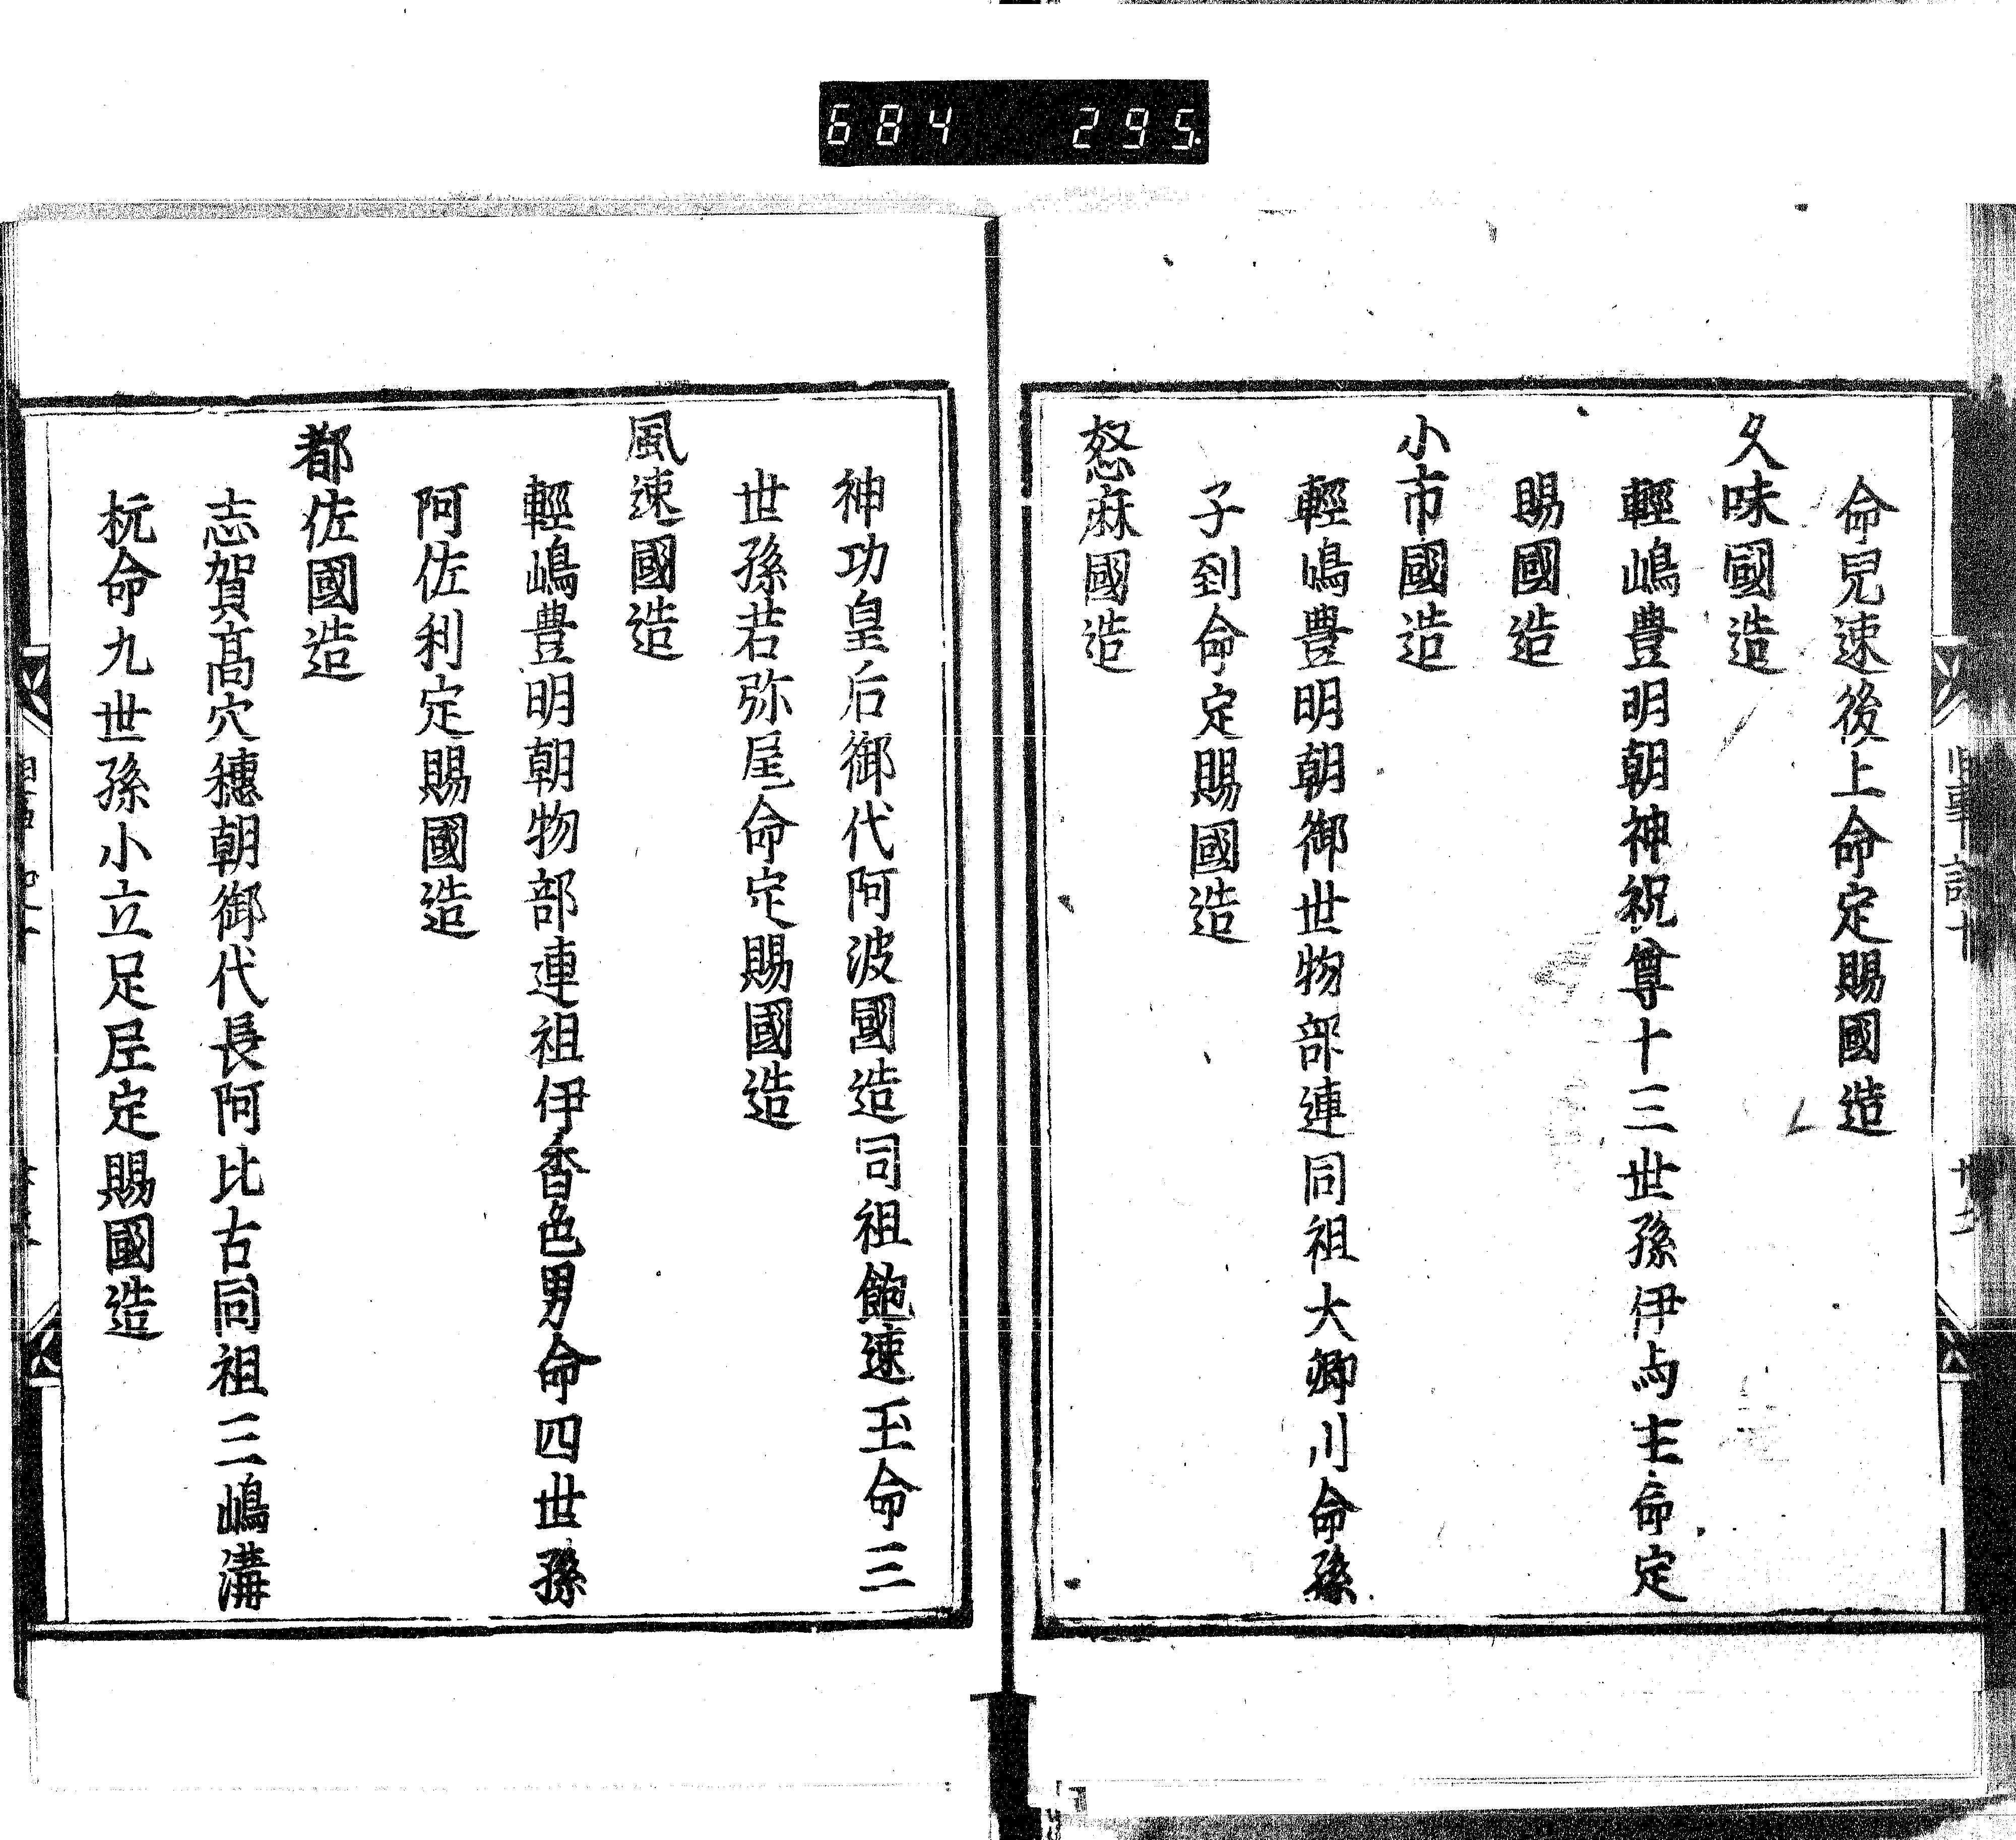 684 295.
命兒速後上命定賜國造
久味國造
輕嶋豊明朝神祝尊十三世孫伊与主命定
賜國造
小市國造
輕嶋豊明朝御世物部連同祖大卿川命孫
子到命定賜國造
怒麻國造
神功皇后御代阿波國造同祖飽速玉命三
世孫若弥尾命定賜國造
風速國造
輕嶋豊明朝物部連祖伊香色男命四世孫
阿佐利定賜國造
都佐國造
志賀髙穴穗朝御代長阿比古同祖三嶋溝
杬命九世孫小立足尼定賜國造